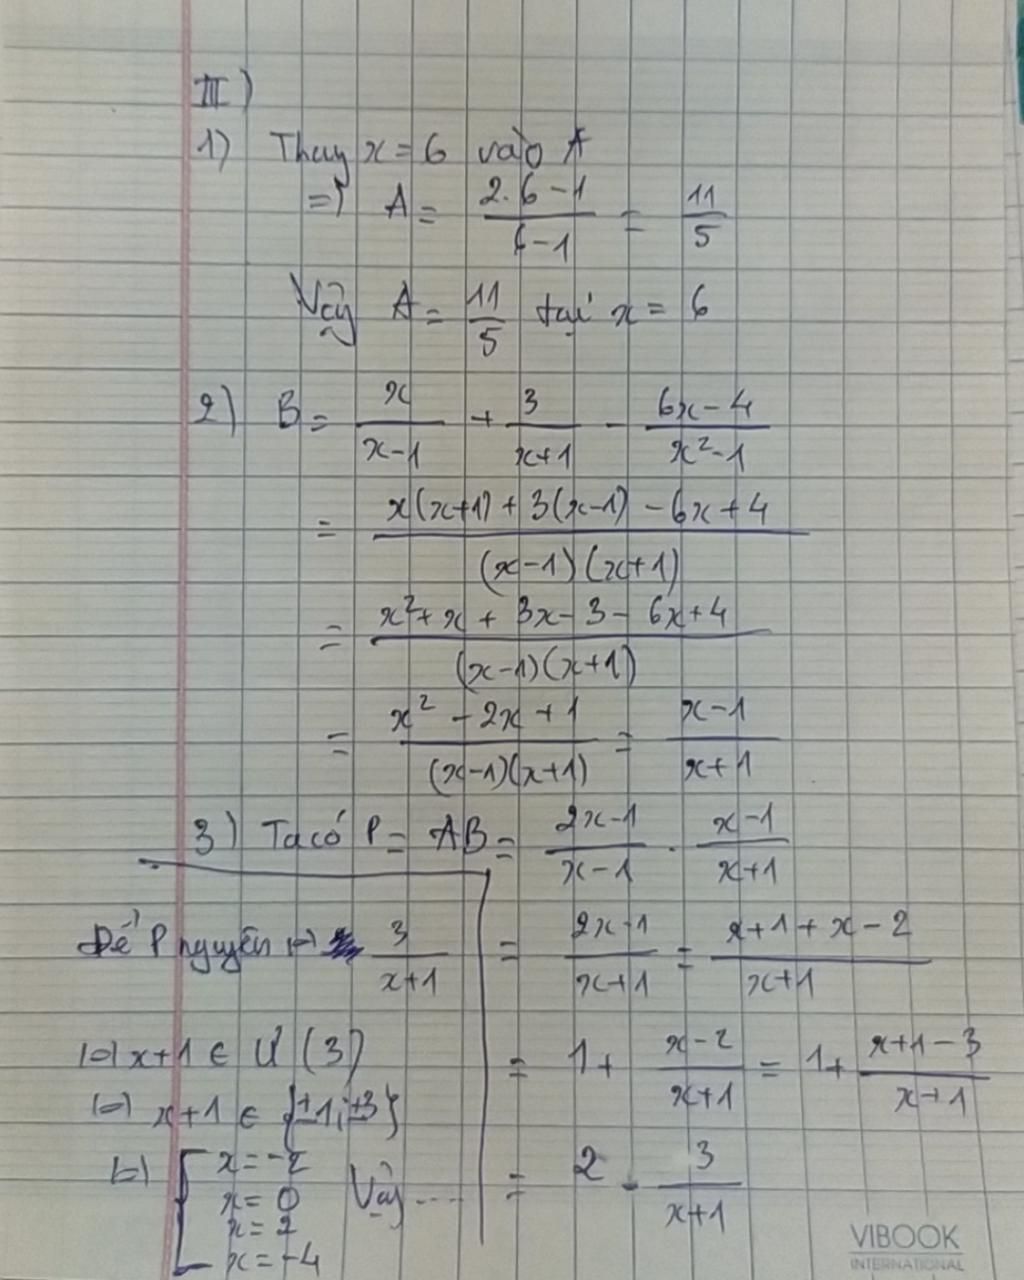 III)
1) Thay x = 6 vào A
=> A = (2.6 - 1)/(6 - 1) = 11/5
Vậy A = 11/5 tại x = 6
2) B = x/(x-1) + 3/(x+1) - (6x-4)/(x²-1)
= (x(x+1) + 3(x-1) - 6x + 4)/((x-1)(x+1))
= (x² + x + 3x - 3 - 6x + 4)/((x-1)(x+1))
= (x² - 2x + 1)/((x-1)(x+1)) = (x-1)/(x+1)
3) Ta có P = AB = (2x-1)/(x-1) . (x-1)/(x+1)
= (2x-1)/(x+1) = (x+1+x-2)/(x+1)
= 1 + (x-2)/(x+1) = 1 + (x+1-3)/(x+1)
= 2 - 3/(x+1)
Để P nguyên <=> 3/(x+1)
<=> x+1 ∈ Ư (3)
<=> x+1 ∈ {±1; ±3}
<=> [ x = -2
x = 0 Vậy ....
x = 2
x = -4
VIBOOK
INTERNATIONAL